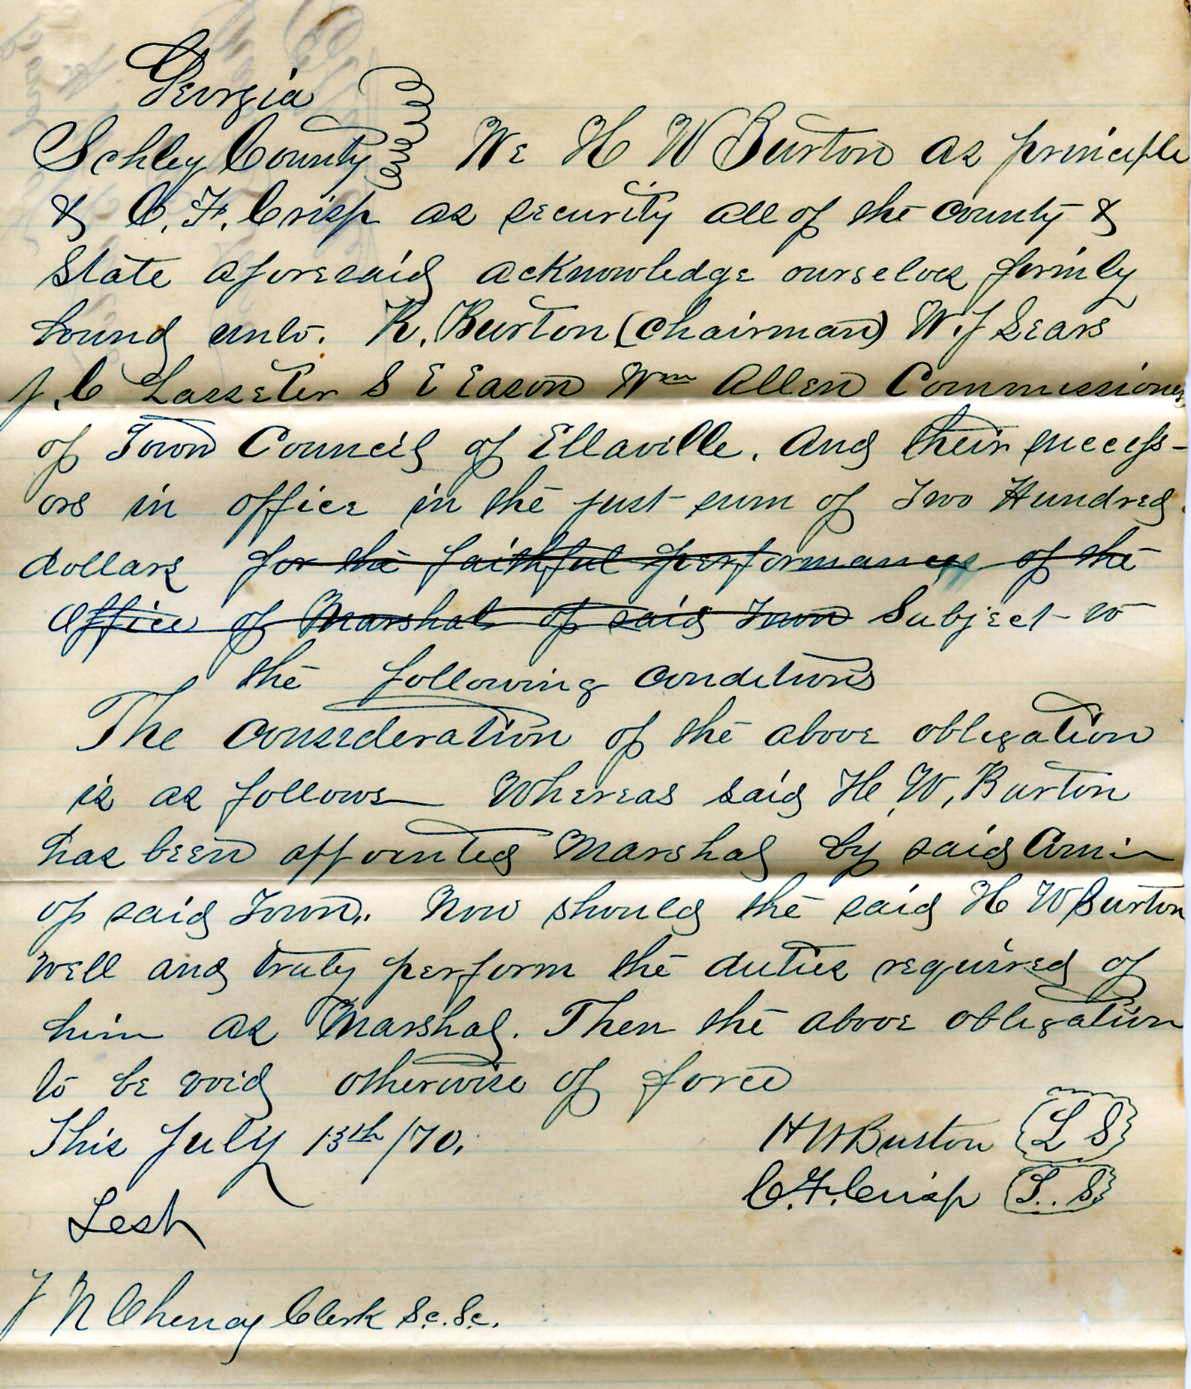 Georgia
Schley County We H W Burton as principle
& C. F. Crisp as security all of the county &
State aforesaid acknowledge ourselves firmly
bound unto. R. Burton (Chairman) W. J Sears
J. C Lasseter S E Eason Wm Allen Commissioners
of Town Council of Ellaville. And their success-
ors in office in the just sum of Two Hundred
dollars for the faithful performances of the
Office of Marshal of said Town Subject to
the following conditions
The consideration of the above obligation
is as follows Whereas said H. W. Burton
has been appointed Marshal by said Com
of said Town. Now should the said H W Burton
well and truly perform the duties required of
him as Marshal. Then the above obligation
to be void otherwise of force
This July 13th /70.
H W Burton (L S)
C. F. Crisp (L. S)
Test
J N Cheney Clerk S.C. S.C.